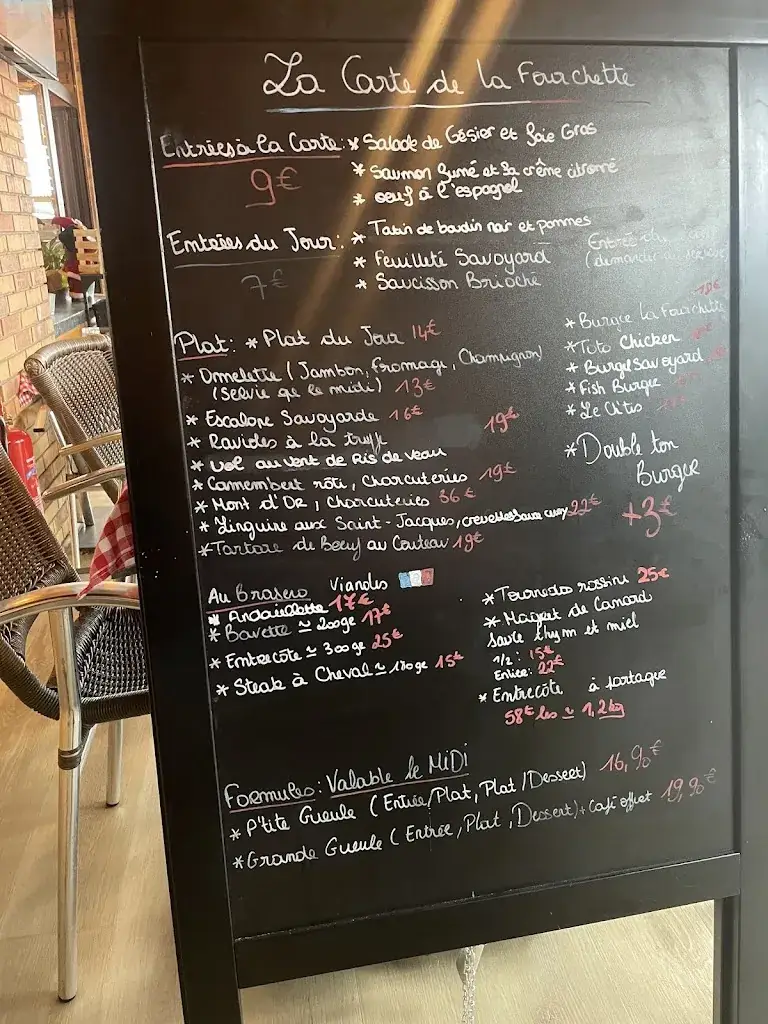 La Carte de la Fourchette
Entrées à la Carte : * Salade de Gésier et foie Gras
9€
* Saumon fumé et sa crème citronné
* oeuf à l'espagnol
Entrées du Jour : * Tatin de boudin noir et pommes
7€
* Feuilleté Savoyard
* Saucisson Brioché
Entrée du
(demander au
Plat : * Plat du Jour 14€
* Omelette (Jambon, fromage, Champignon)
(servie que le midi) 13€
* Escalope Savoyarde 16€
* Ravioles à la truffe 19€
* Vol au vent de Ris de veau
* Camembert rôti, Charcuteries 19€
* Mont d'OR, Charcuteries 36€
* Linguine aux Saint-Jacques, crevettes sauce curry 22€
* Tartare de Boeuf au Couteau 19€
* Burger La Fourchette
* Toto Chicken
* Burger Savoyard
* Fish Burger
* Le Ch'tis
* Double ton
Burger
+3€
Au Brasero Viandes
* Andouillette 17€
* Bavette ≃ 200gr 17€
* Entrecôte ≃ 300gr 25€
* Steak à Cheval ≃ 170gr 15€
* Tournedos rossini 25€
* Magret de Canard
sauce thym et miel
1/2 : 15€
Entier : 22€
* Entrecôte à partager
58€ les ≃ 1,2kg
Formules : Valable le MiDi
* P'tite Gueule (Entrée/Plat, Plat/Dessert) 16,90€
* Grande Gueule (Entrée, Plat, Dessert) + Café offert 19,90€